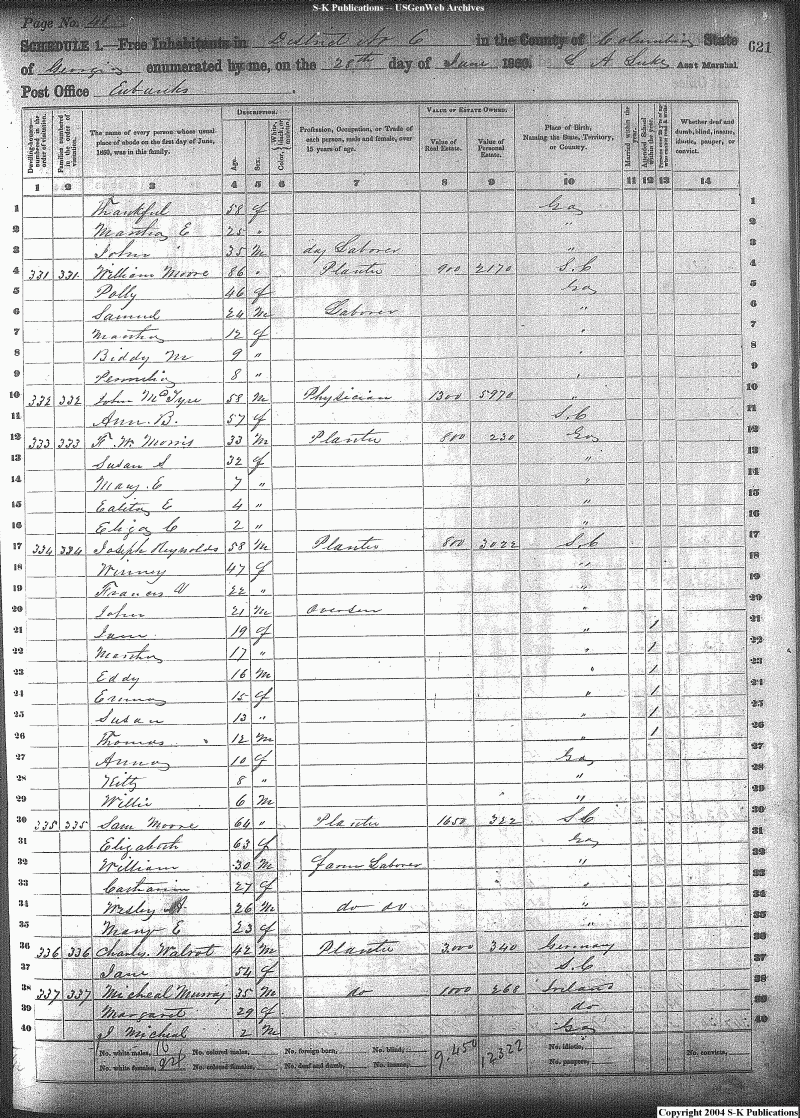 S-K Publications -- USGenWeb Archives
Page No. 48
SCHEDULE 1.—Free Inhabitants in District No 6 in the County of Columbia State
of Georgia enumerated by me, on the 28th day of June 1860. S A Luke Ass't Marshal
621
Post Office Eubanks
DESCRIPTION. VALUE OF ESTATE OWNED.
Dwelling-houses—numbered in the order of visitation. Families numbered in the order of visitation. The name of every person whose usual place of abode on the first day of June, 1860, was in this family. Age. Sex. Color, White, black, or mulatto. Profession, Occupation, or Trade of each person, male and female, over 15 years of age. Value of Real Estate. Value of Personal Estate. Place of Birth, Naming the State, Territory, or Country. Married within the year. Attended School within the year. Whether deaf and dumb, blind, insane, idiotic, pauper, or convict.
1 2 3 4 5 6 7 8 9 10 11 12 13 14
1 Thankful 58 f Ga 1
2 Martha E 25 " " 2
3 John 35 M day Laborer " 3
4 331 331 William Moore 86 " Planter 900 2170 S.C 4
5 Polly 46 f Ga 5
6 Samuel 24 M Laborer " 6
7 Martha 12 f " 7
8 Biddy M 9 " " 8
9 8 " " 9
10 332 332 John McTyre 58 M Physician 1300 5970 " 10
11 Ann. B. 57 f S.C 11
12 333 333 F. W. Morris 33 M Planter 800 230 Ga 12
13 Susan S 32 f " 13
14 Mary. E 7 " " 14
15 E 4 " " 15
16 Eliza C 2 " " 16
17 334 334 Joseph Reynolds 58 M Planter 800 3022 S.C 17
18 Winney 47 f " 18
19 Frances V 22 " " 19
20 John 21 M Overseer " 20
21 Jane 19 f " 1 21
22 Martha 17 " " 1 22
23 Eddy 16 M " 1 23
24 Emma 15 f " 1 24
25 Susan 13 " " 1 25
26 Thomas 12 M " 1 26
27 Anna 10 f Ga 27
28 Kitty 8 " " 28
29 Willie 6 M " 29
30 335 335 Sam Moore 64 " Planter 1650 322 S.C 30
31 Elizabeth 63 f Ga 31
32 William 30 M farm Laborer " 32
33 Catharine 27 f " 33
34 Wesley A 26 M do do " 34
35 Mary E 23 f " 35
36 336 336 Charly. Walrot 42 M Planter 3000 340 Germany 36
37 Jane 54 f S.C 37
38 337 337 Micheal Murray 35 M do 1000 268 Ireland 38
39 Margaret 29 f do 39
40 J Micheal 2 M Ga 40
No. white males, 16 No. colored males, No. foreign born, No. blind, 9,450 12322 No. idiotic, No. convicts,
No. white females, 24 No. colored females, No. deaf and dumb, No. insane, No. paupers,
Copyright 2004 S-K Publications